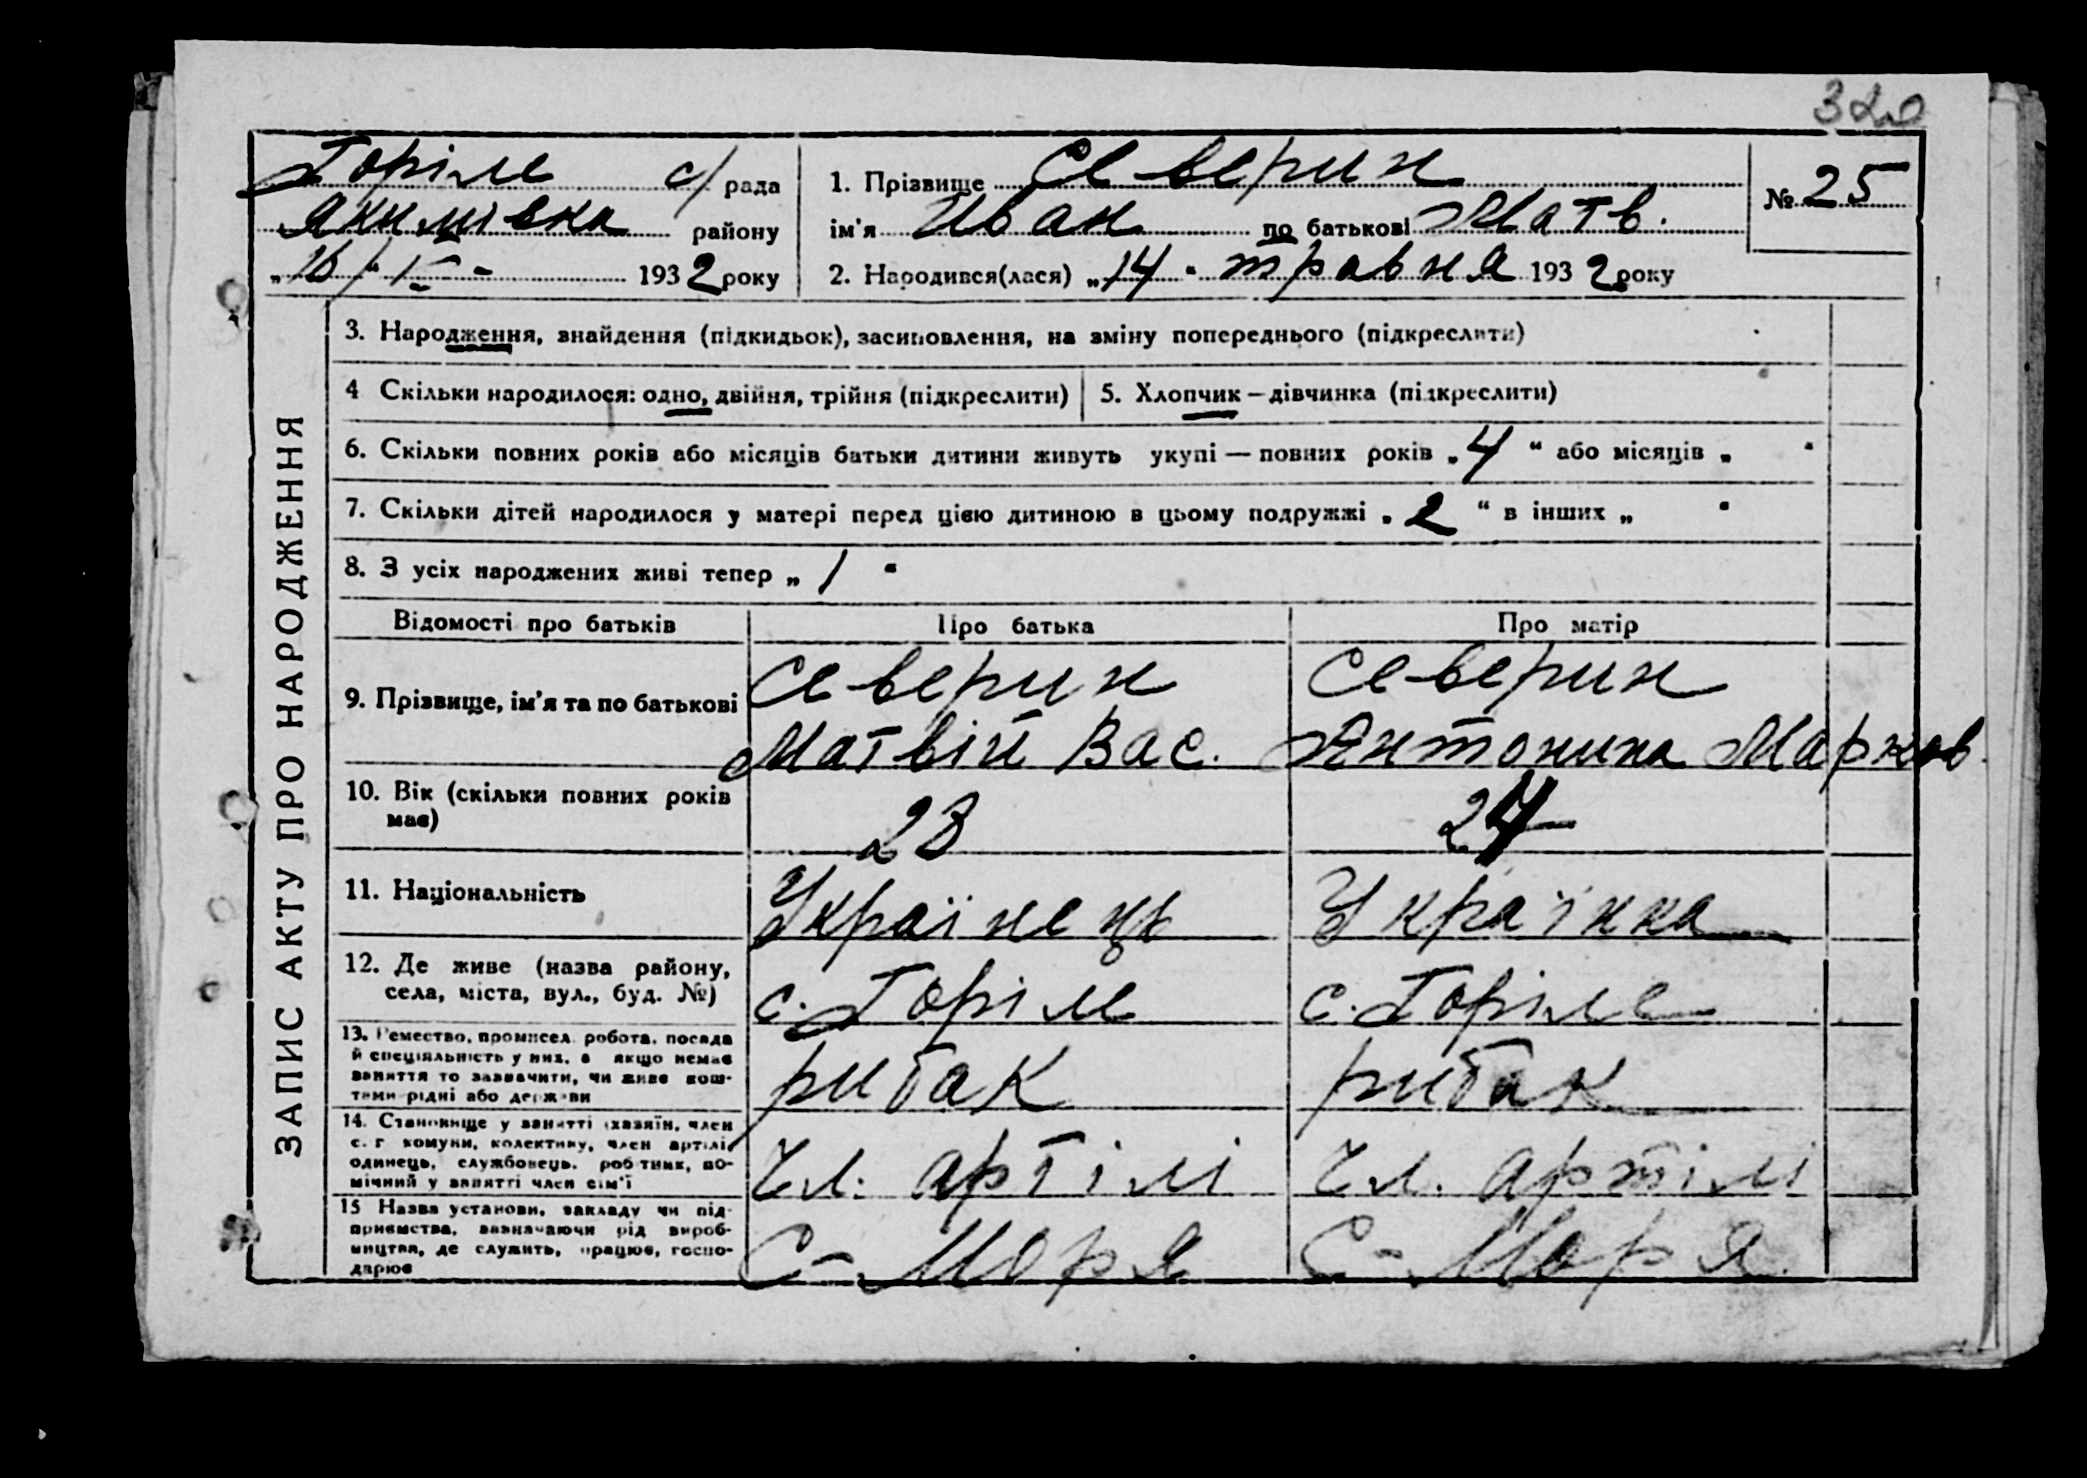 320
Горіле с/рада
Якимівка району
„16/" V - 1932 року
1. Прізвище Северин
ім'я Иван по батькові Матв.
№ 25
2. Народився(лася) „14" травня 1932 року
ЗАПИС АКТУ ПРО НАРОДЖЕННЯ
3. Народження, знайдення (підкидьок), засиновлення, на зміну попереднього (підкреслити)
4 Скільки народилося: одно, двійня, трійня (підкреслити) 5. Хлопчик – дівчинка (підкреслити)
6. Скільки повних років або місяців батьки дитини живуть укупі — повних років „4" або місяців „ "
7. Скільки дітей народилося у матері перед цією дитиною в цьому подружжі „2" в інших „ "
8. З усіх народжених живі тепер „1"
Відомості про батьків Про батька Про матір
9. Прізвище, ім'я та по батькові Северин Матвій Вас. Северин Антонина Марков.
10. Вік (скільки повних років
має) 23 24
11. Національність Українець Українка
12. Де живе (назва району,
села, міста, вул., буд. №) с. Горіле с. Горіле
13. Ремество, промисел, робота, посада
й спеціяльність у них, а якщо немає
заняття то зазначити, чи живе кош-
тами рідні або держави рибак рибак
14. Становище у занятті (хазяїн, член
с. г комуни, колективу, член артілі,
одинець, службовець, робітник, по-
мічний у занятті член сім'ї Чл. артілі Чл. артілі
15 Назва установи, закладу чи під-
приємства, зазначаючи рід вироб-
ництва, де служить, працює, госпо-
дарює С-Моря С-Моря